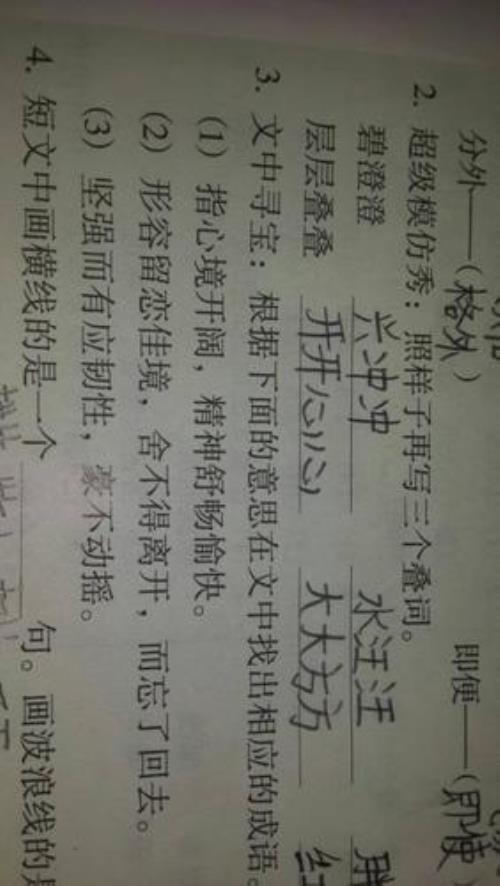 分外——(格外) 即便——(即使
2. 超级模仿秀：照样子再写三个叠词。
碧澄澄 兴冲冲 水汪汪
层层叠叠 开开心心 大大方方
3. 文中寻宝：根据下面的意思在文中找出相应的成语。
(1) 指心境开阔，精神舒畅愉快。
(2) 形容留恋佳境，舍不得离开，而忘了回去。
(3) 坚强而有应韧性，豪不动摇。
4. 短文中画横线的是一个 句。画波浪线的是